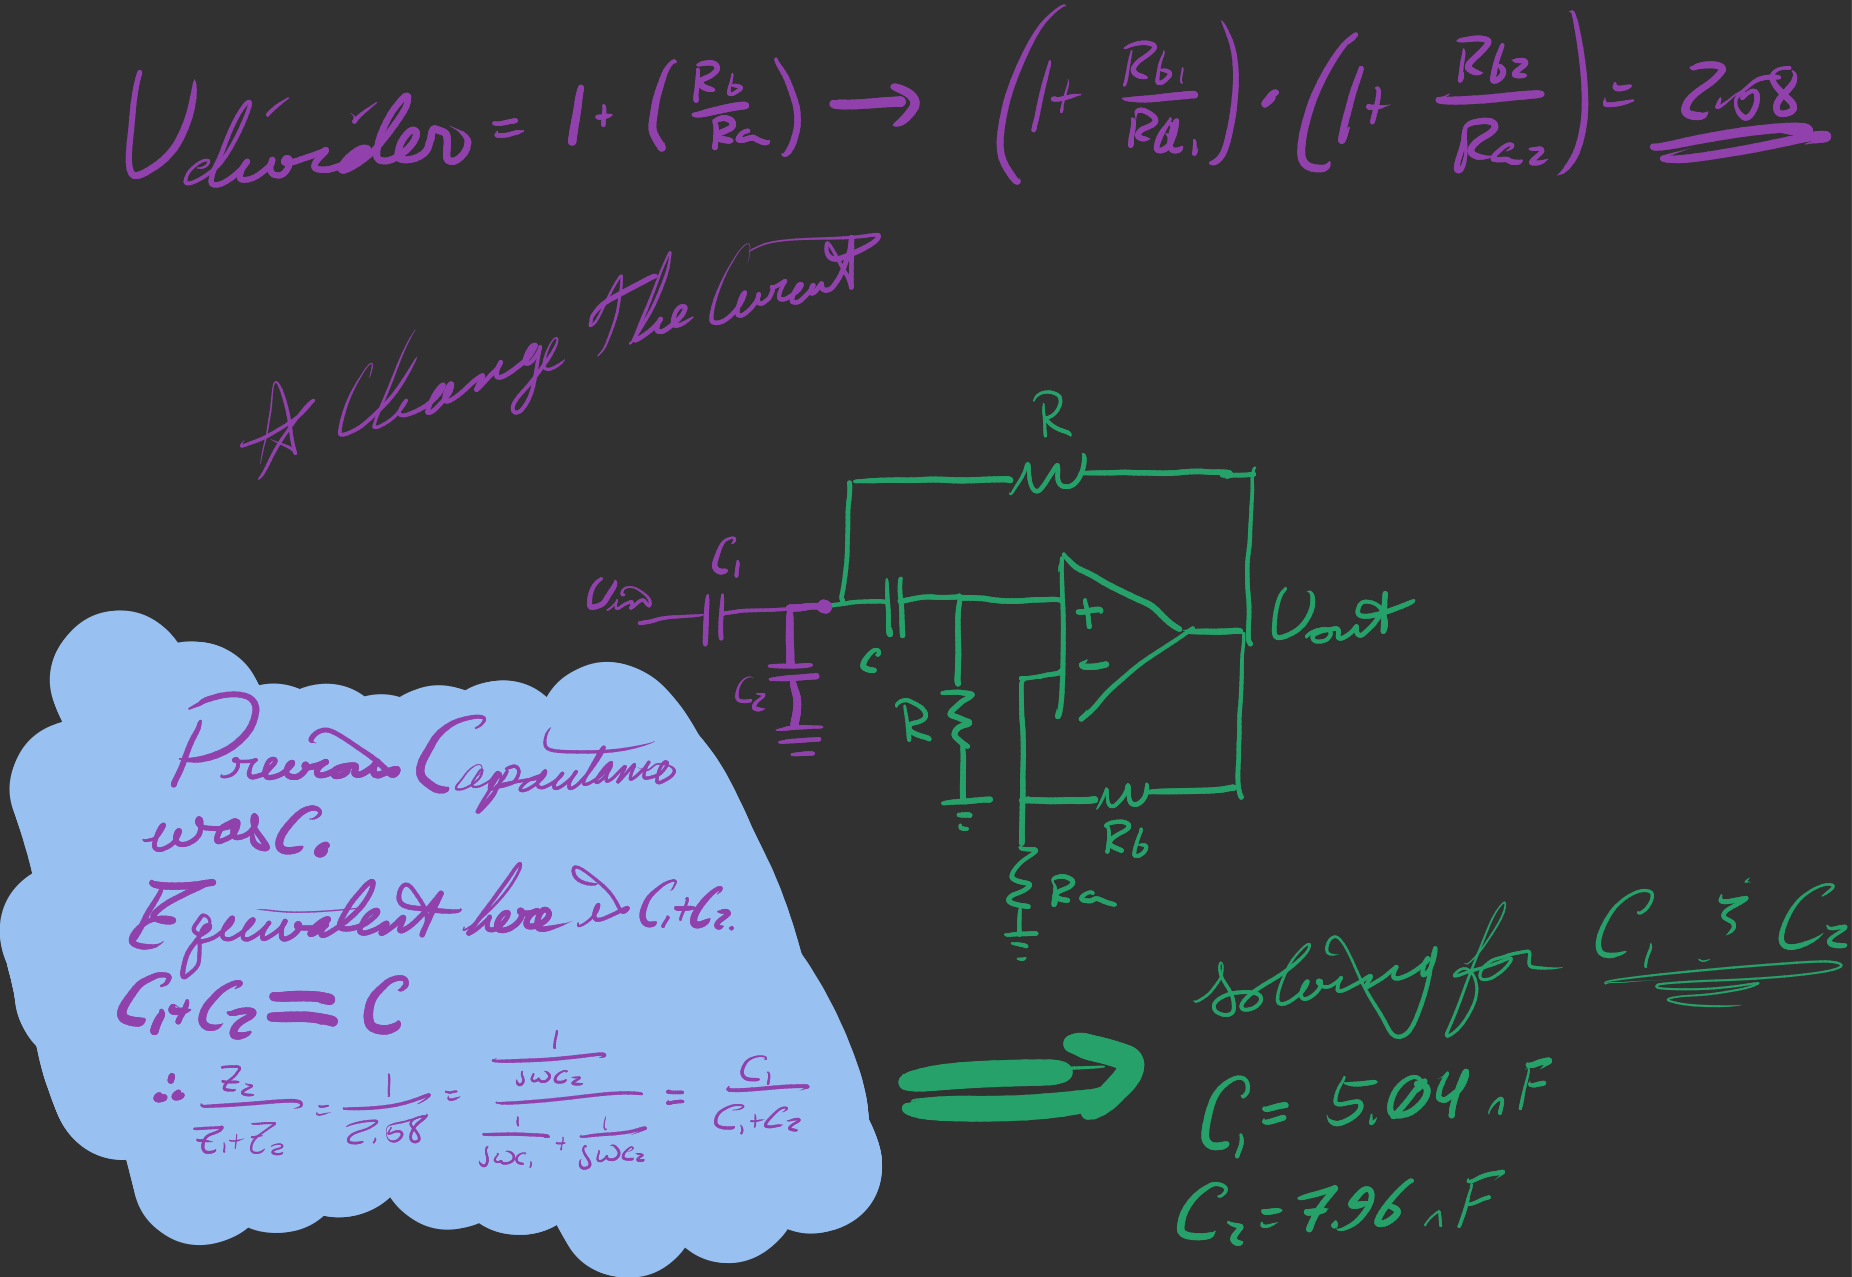 Vdivider = 1 + (Rb/Ra) → (1 + Rb1/Ra1) · (1 + Rb2/Ra2) = 2.58
☆ Change The Current
R
C1
Vin
+
Vout
C
-
C2
R
Rb
Ra
Previous Capacitance
was C.
Equivalent here is C1+C2.
C1+C2 = C
∴ Z2/(Z1+Z2) = 1/2.58 = (1/jωC2)/(1/jωC1 + 1/jωC2) = C1/(C1+C2)
solving for C1 & C2
C1 = 5.04 nF
C2 = 7.96 nF